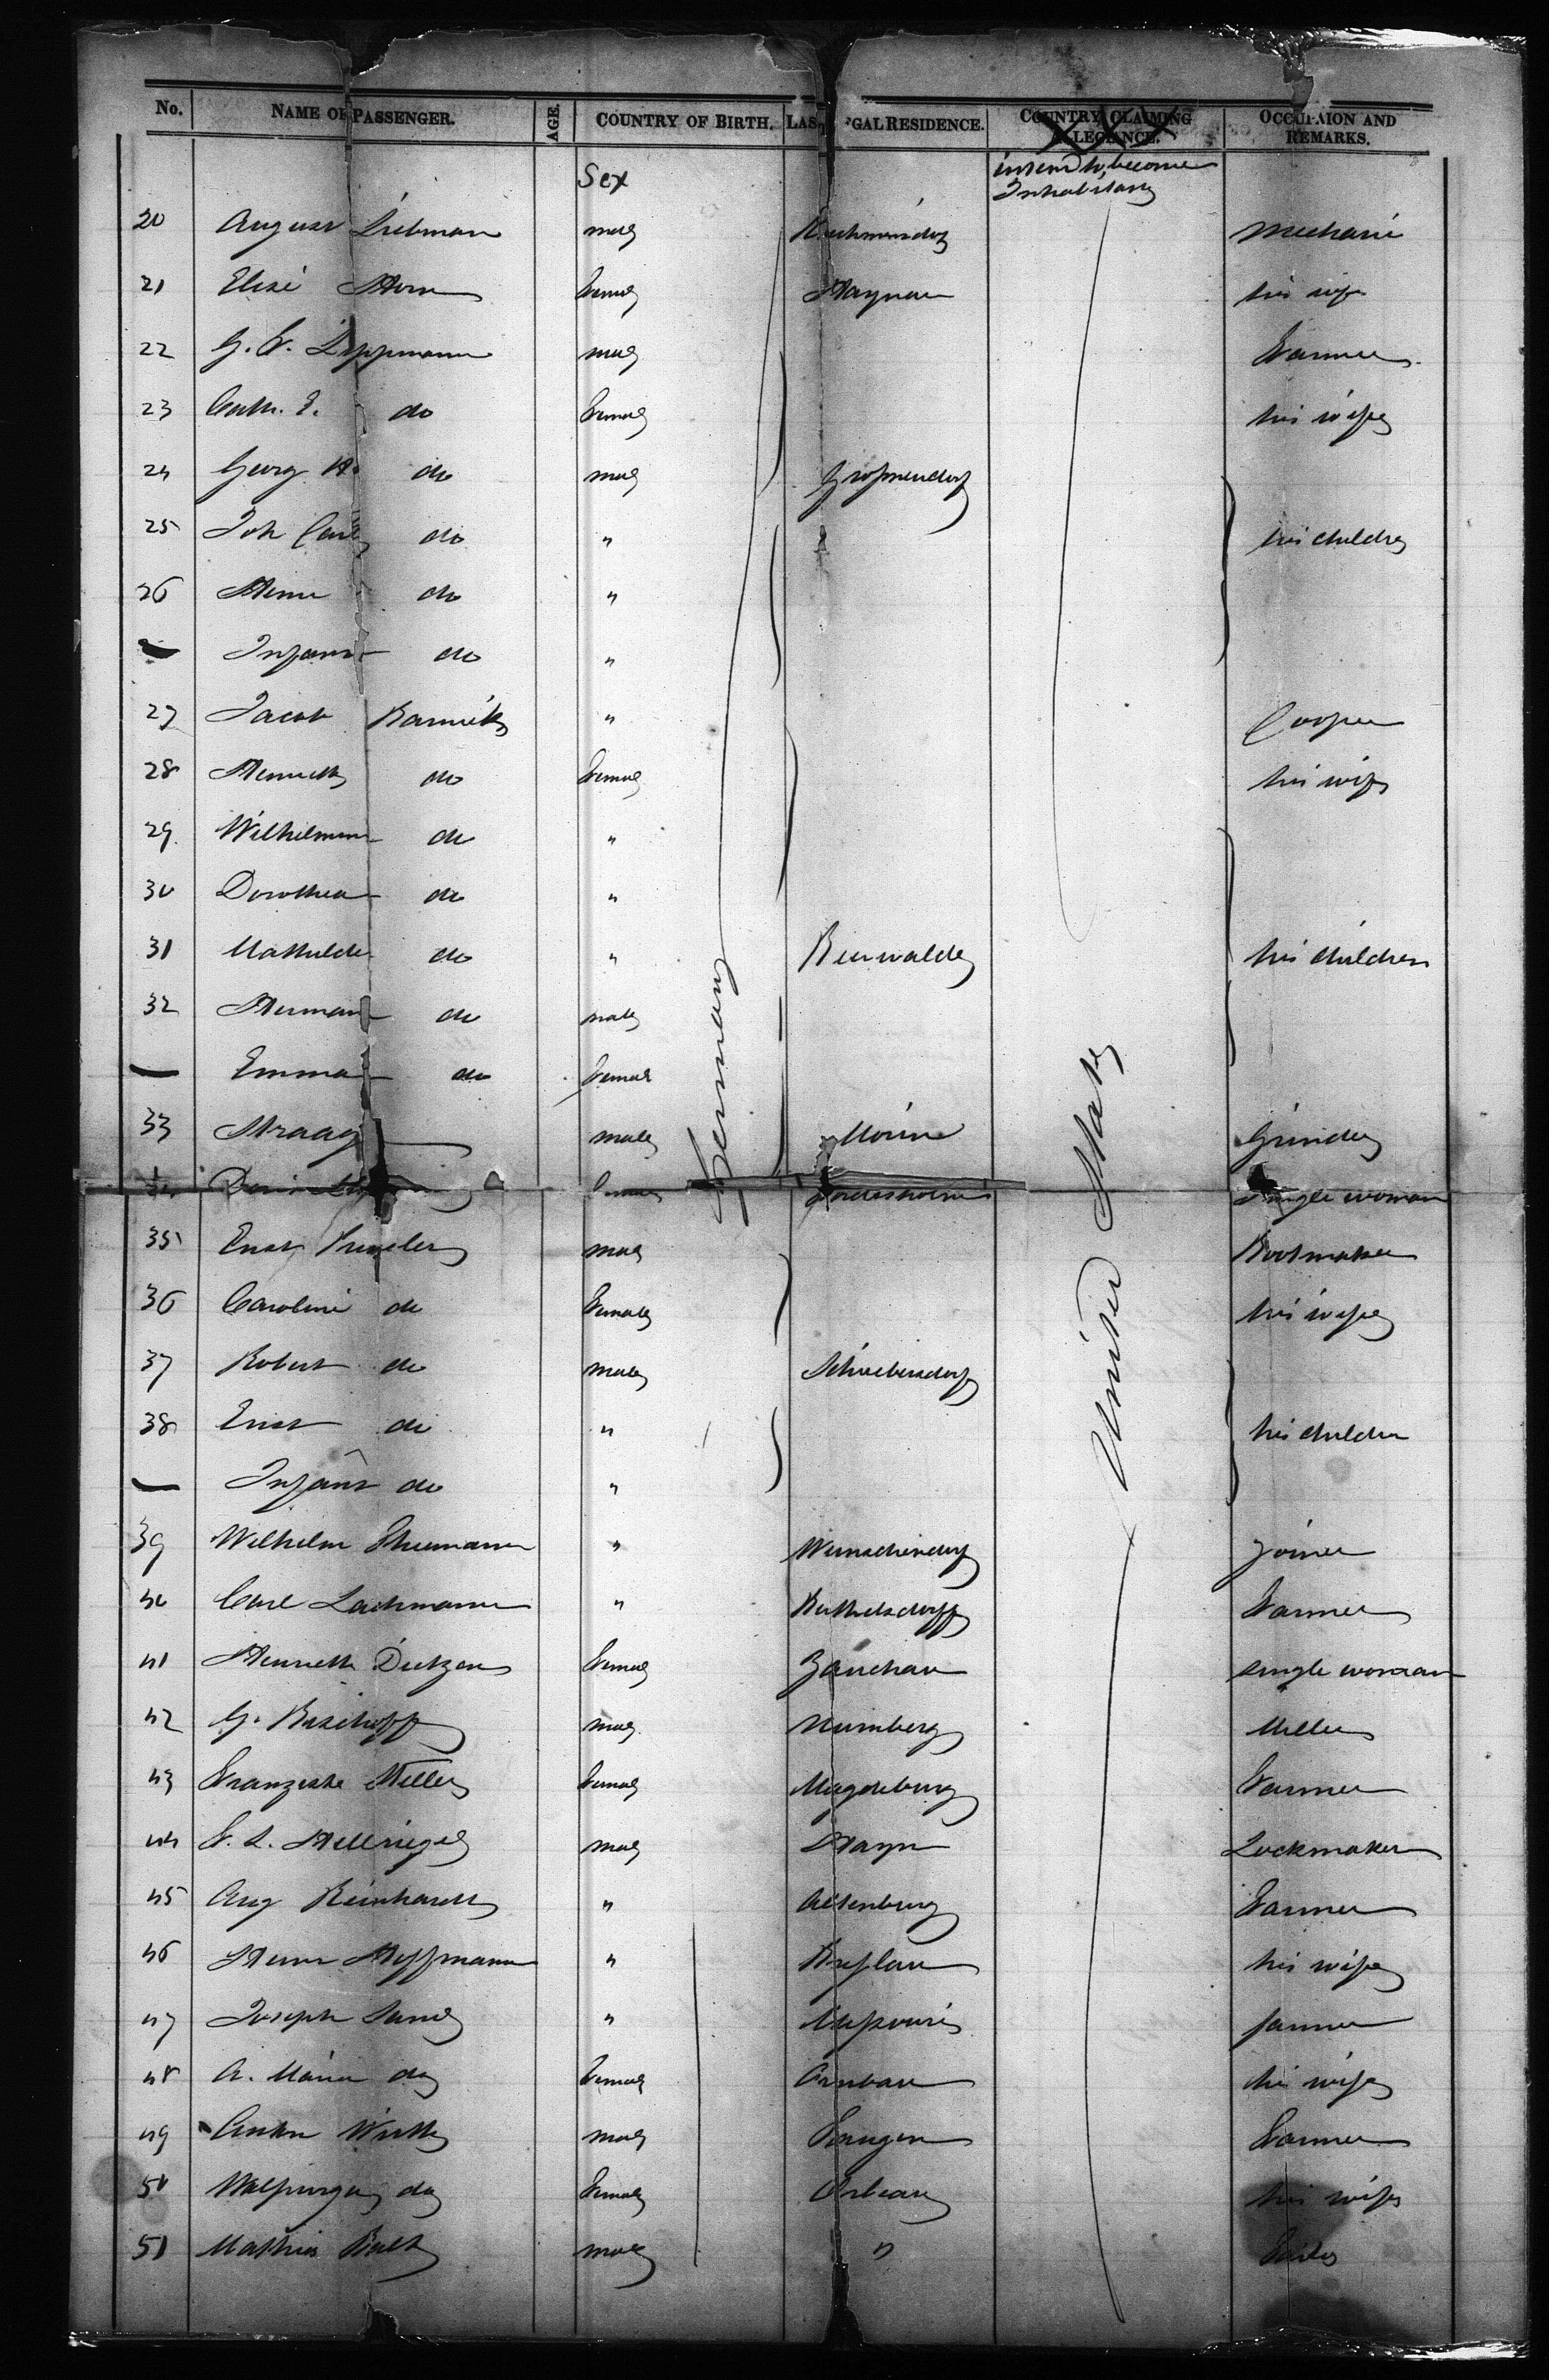 No. NAME OF PASSENGER. AGE. COUNTRY OF BIRTH. LAS GAL RESIDENCE. COUNTRY CLAIMING ALLEGIANCE. OCCUPAION AND REMARKS.
Sex intend to become Inhabitants
20 August Liebman male mechanic
21 Elise Horn female Haynau his wife
22 G. F. Lippmann male Farmer
23 Cath. E. do female his wife
24 Georg H. do male Grossneudorf
25 Joh Carl do " his children
26 Henri do "
— Infant do "
27 Jacob Barnick " Cooper
28 Henriette do female his wife
29 Wilhelmine do "
30 Dorothea do "
31 Mathilde do " Beerwalde his children
32 Herman do male
— Emma do female
33 Straag male Grinder
34 female single woman
35 Ernst male Bootmaker
36 Caroline do female his wife
37 Robert do male Schreibersdorf
38 Ernst do " his children
— Infant do "
39 Wilhelm Thiemann " Wunschendorf joiner
40 Carl Lachmann " Berthelsdorff Farmer
41 Henriette Dietzen female Zauchau single woman
42 G. Bischoff male Nurnberg Miller
43 Franziska Heller female Magdeburg Farmer
44 F. L. Hellriegel male Hayn Lockmaker
45 Aug Reinhardt " Altenburg Farmer
46 Herm Hoffmann " Breslau his wife
47 Joseph " Missouri farmer
48 A. Maria do female his wife
49 Anton Wirth male Farmer
50 Walpurga do female his wife
51 Mathias male "
Germany
United States